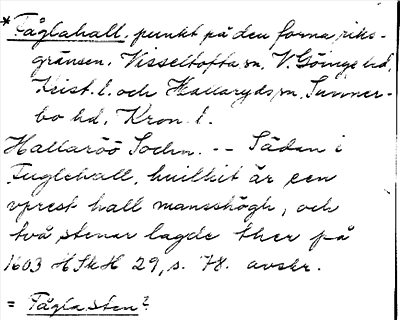 *Fåglahall, punkt på den forna riks-
gränsen, Visseltofta sn, V. Göinge hd,
Krist. l. och Hallaryds sn, Sunner-
bo hd, Kron. l.
Hallaröö Sochn. -- Sädan i
Fuglehall, huilkit är een
vprest hall mansshögh, och
två stenar lagde ther på
1603 HSkH 29, s. 78. avskr.
= Fågla sten?